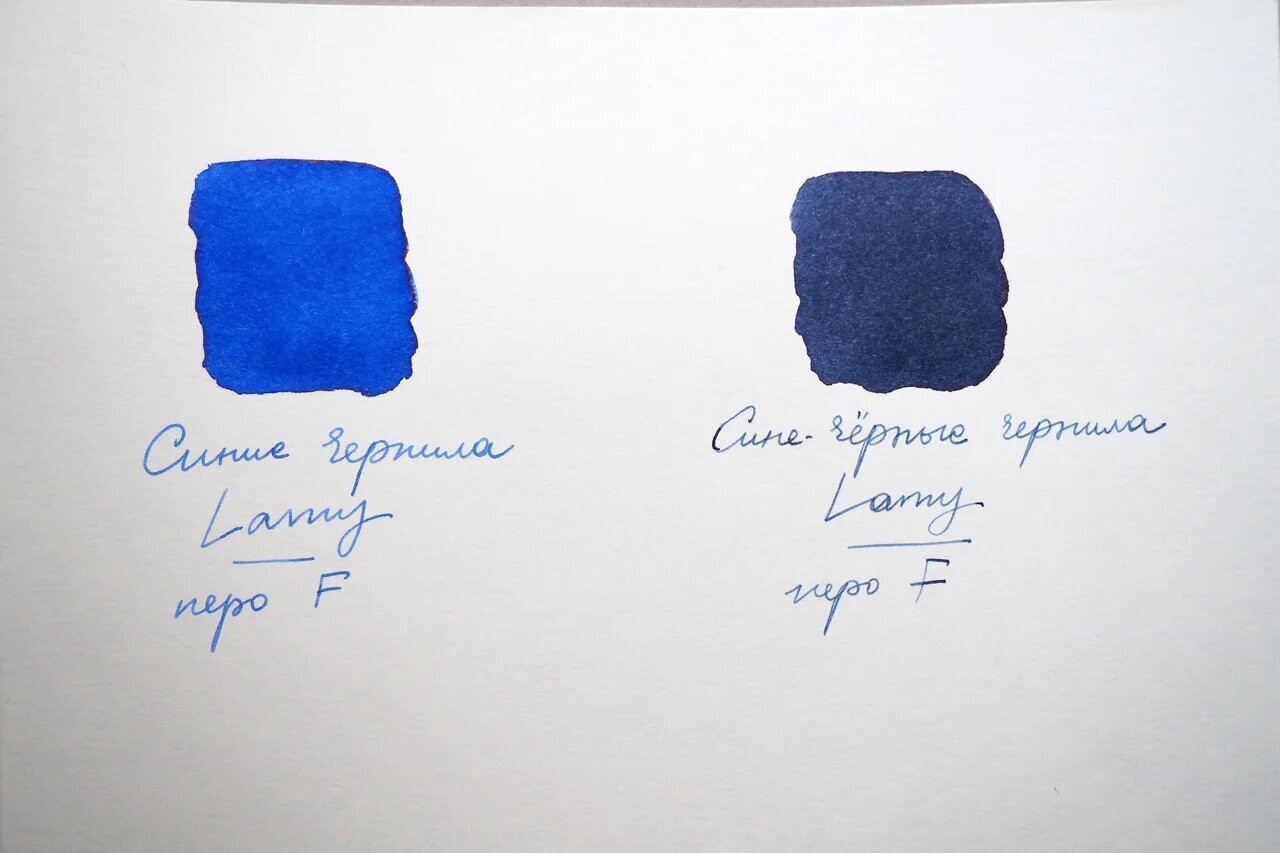 Синие чернила
Lamy
перо F
Сине-чёрные чернила
Lamy
перо F